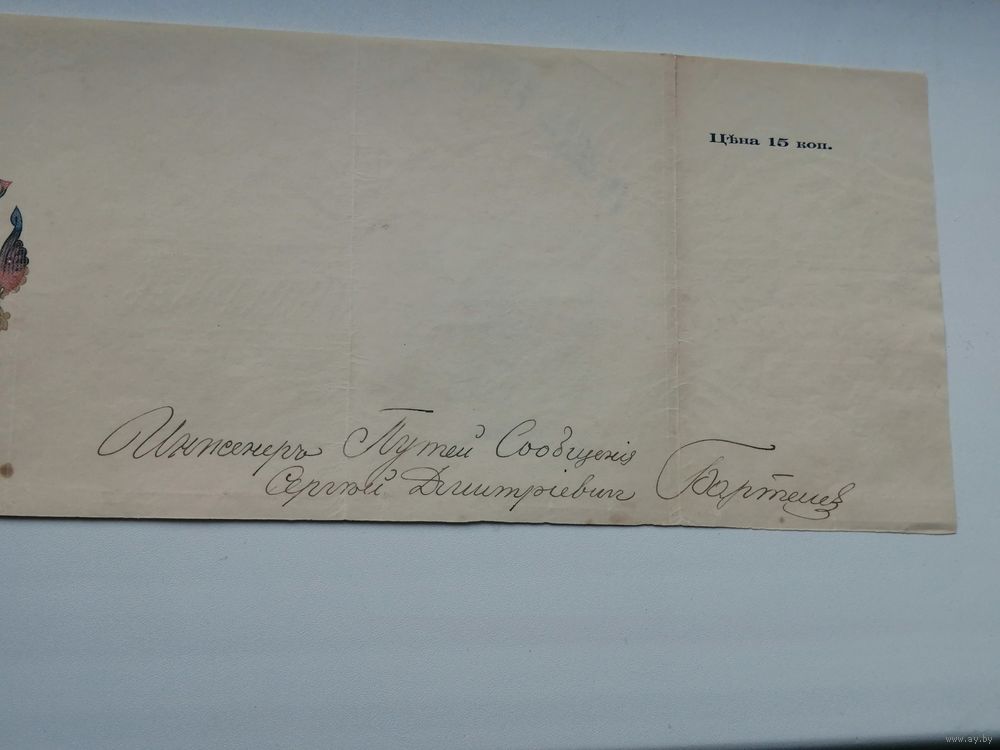 Цѣна 15 коп.
Инженеръ Путей Сообщенія
Сергѣй Дмитріевич Бартенев
www.ay.by